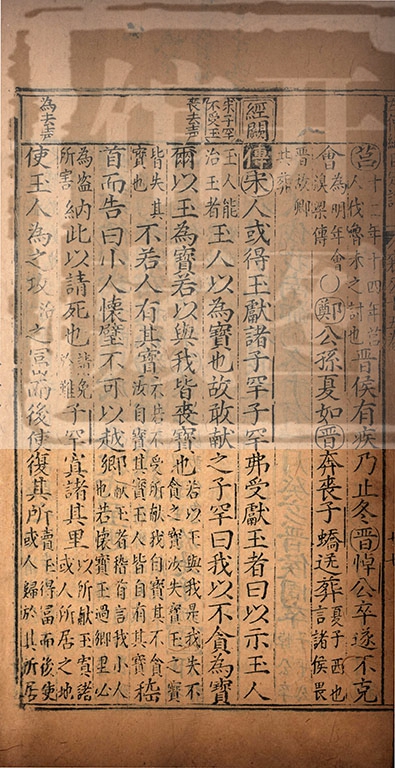 莒十二年十四年莒人伐魯未之討也晉侯有疾乃止冬晉悼公卒遂不克
會為明年會溴梁傳○鄭公孫夏如晉奔喪子蟜送葬夏子西也言諸侯畏
晉故卿共葬
經闕
傳宋人或得玉獻諸子罕子罕弗受獻玉者曰以示玉人
宋子罕不受玉
玉人能治玉者玉人以為寶也故敢獻之子罕曰我以不貪為寶
喪去声
爾以玉為寶若以與我皆喪寶也若以與我是我失不貪之寶汝失寶玉之寶
皆失其寶也不若人有其寶不若不受所獻我自寶其不貪汝自寶其寶玉人皆自有其寶稽
首而告曰小人懷璧不可以越鄉獻玉者稽首言我小人也若懷寶玉過鄉里必
為盗所害納此以請死也請免於難子罕寘諸其里以所獻玉寘諸或人所居之地
為去声
使玉人為之攻治之富而後使復其所賣玉得富而後使或人歸於其所居